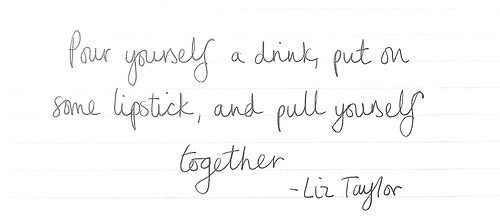 Pour yourself a drink, put on
some lipstick, and pull yourself
together
-Liz Taylor